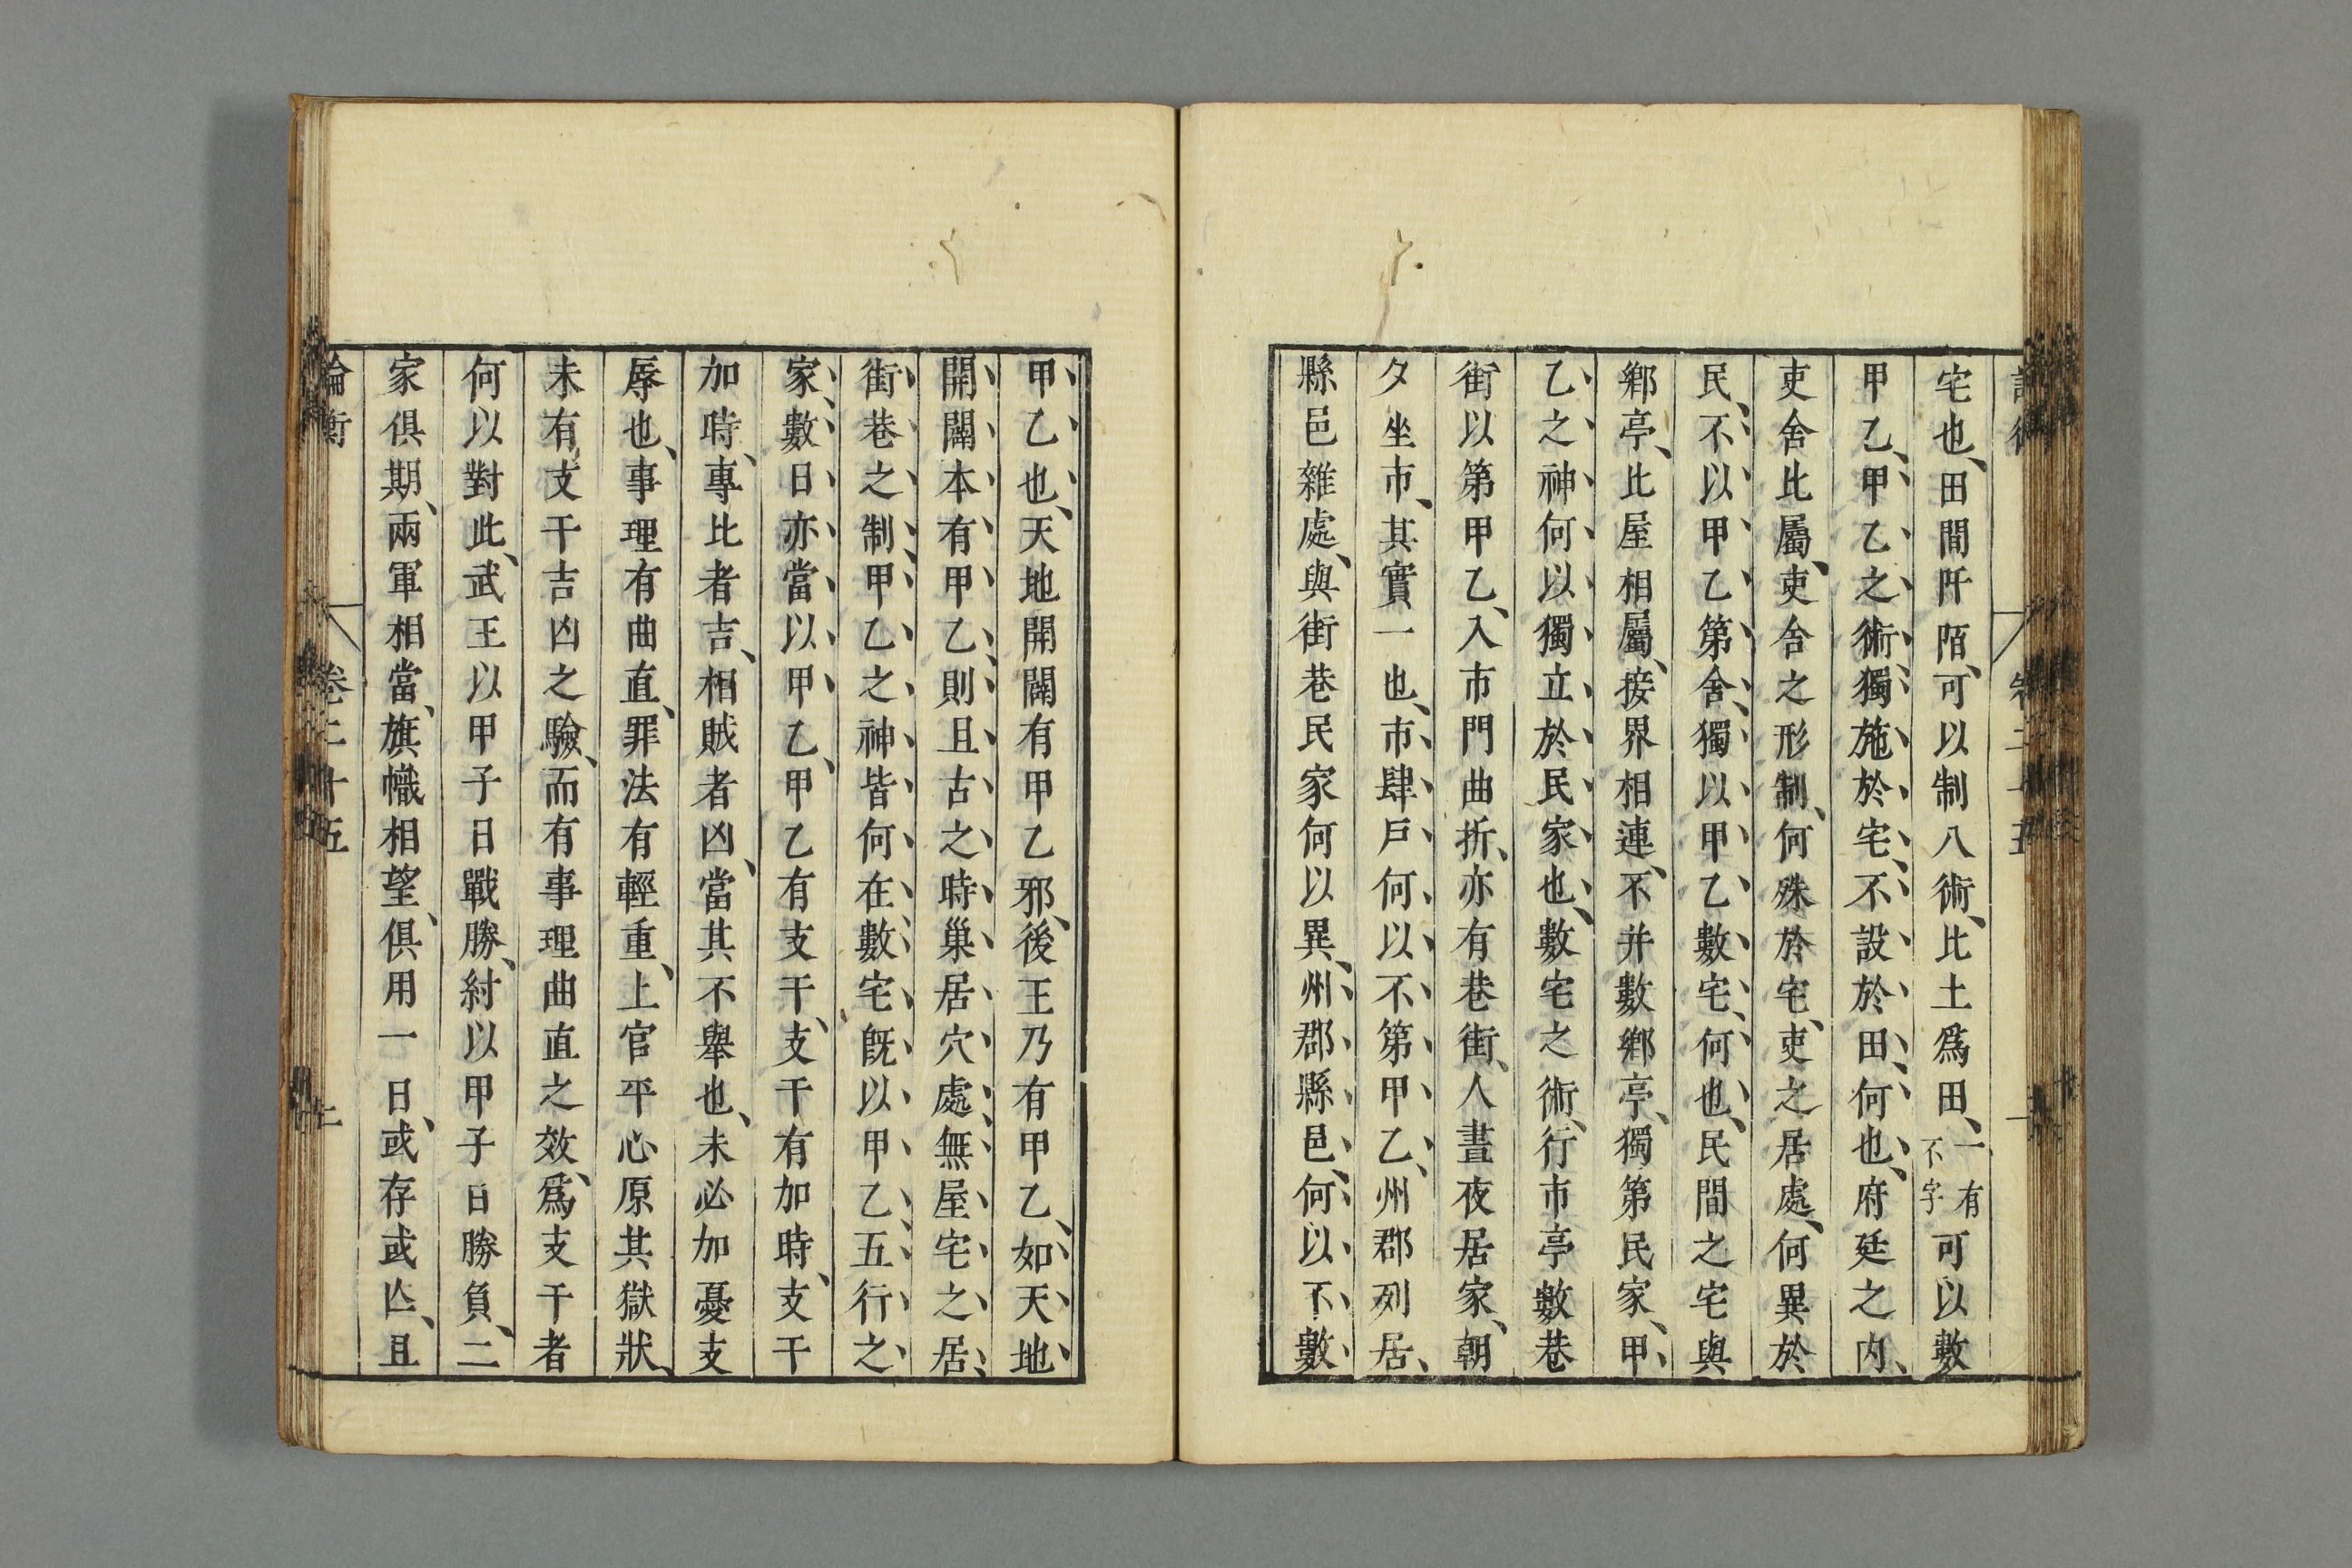 宅也、田間阡陌、可以制八術、比土爲田、一有不字可以數
甲乙、甲乙之術、獨施於宅、不設於田、何也、府廷之內、
吏舍比屬、吏舍之形制、何殊於宅、吏之居處、何異於
民、不以甲乙第舍、獨以甲乙數宅、何也、民間之宅與
鄉亭、比屋相屬、接界相連、不并數鄉亭、獨第民家、甲
乙之神何以獨立於民家也、數宅之術、行市亭數巷
街以第甲乙、入市門曲折、亦有巷街、人晝夜居家、朝
夕坐市、其實一也、市肆戶何以不第甲乙、州郡列居、
縣邑雜處、與街巷民家何以異、州郡縣邑、何以不數
甲乙也、天地開闢有甲乙邪、後王乃有甲乙、如天地
開闢本有甲乙、則且古之時巢居穴處、無屋宅之居、
街巷之制、甲乙之神皆何在、數宅旣以甲乙五行之
家、數日亦當以甲乙、甲乙有支干、支干有加時、支干
加時、專比者吉、相賊者凶、當其不舉也、未必加憂支
辱也、事理有曲直、罪法有輕重、上官平心原其獄狀、
未有支干吉凶之驗、而有事理曲直之效、爲支干者
何以對此、武王以甲子日戰勝、紂以甲子日戰負、二
家俱期、兩軍相當、旗幟相望、俱用一日、或存或亾、且
論衡
卷二十五